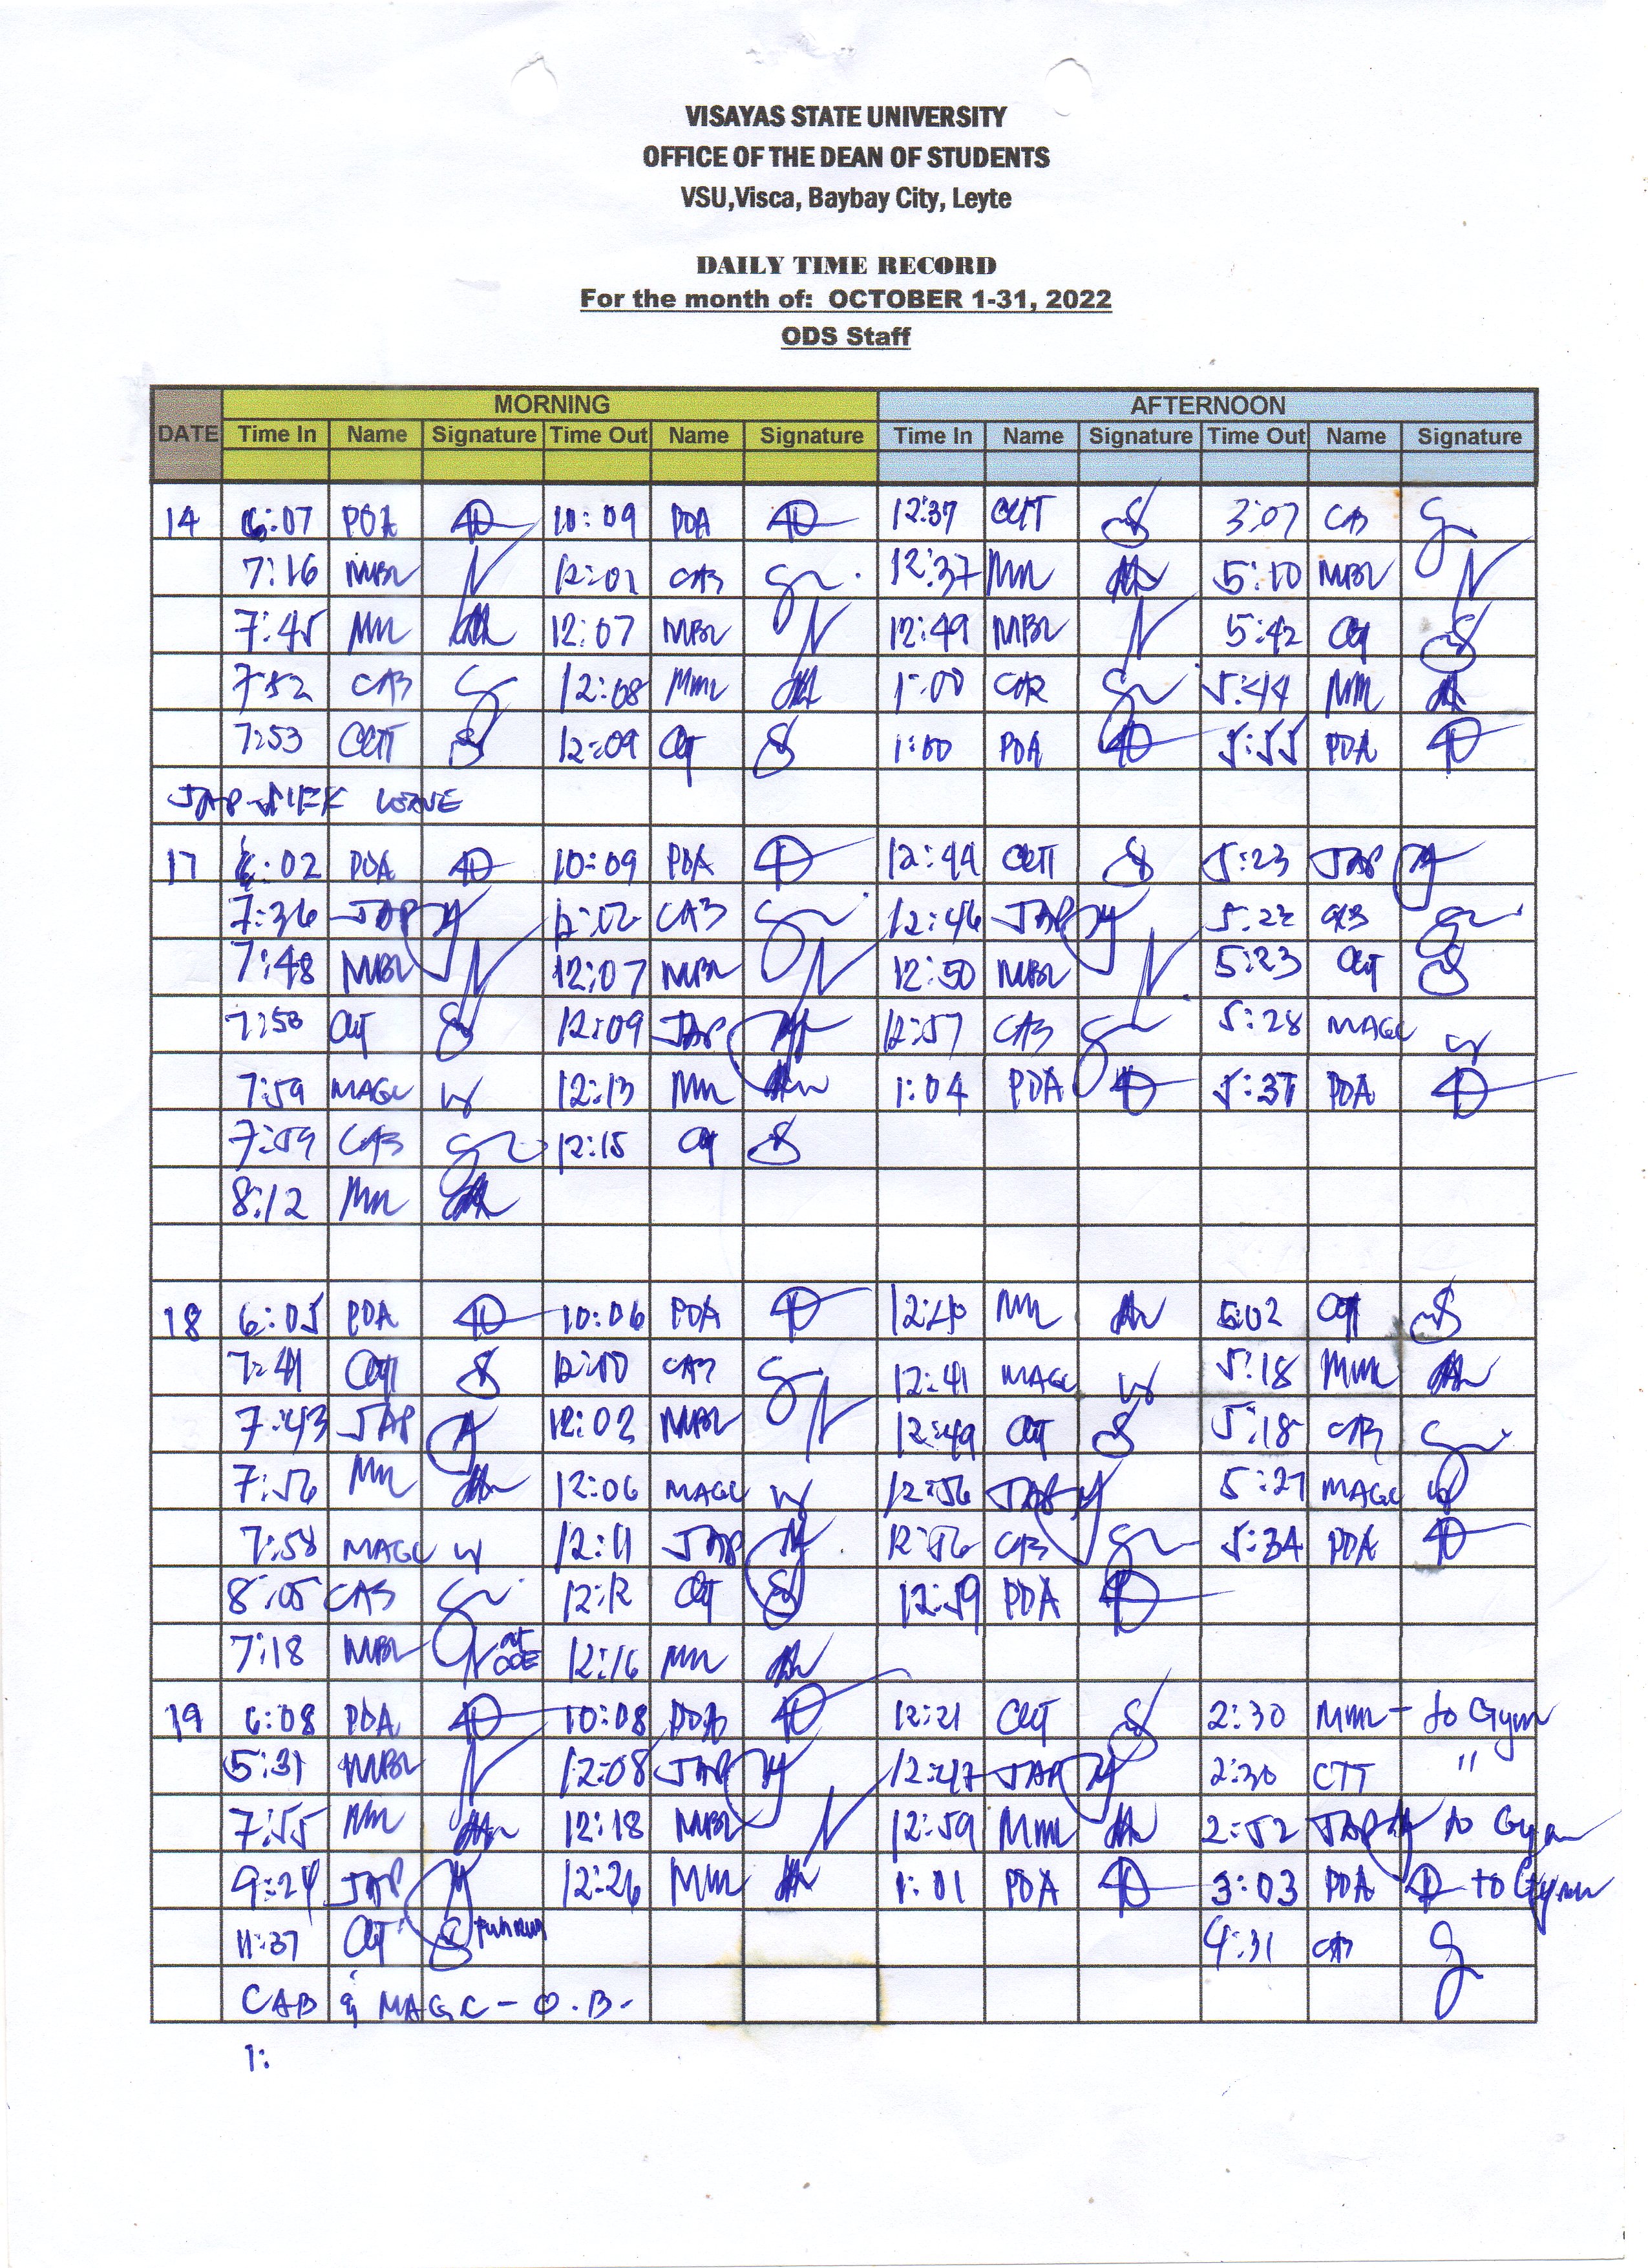 VISAYAS STATE UNIVERSITY
OFFICE OF THE DEAN OF STUDENTS
VSU,Visca, Baybay City, Leyte
DAILY TIME RECORD
For the month of: OCTOBER 1-31, 2022
ODS Staff
MORNING AFTERNOON
DATE Time In Name Signature Time Out Name Signature Time In Name Signature Time Out Name Signature
14 6:07 PDA 10:09 PDA 12:37 3:07 CAB
7:16 MBL 12:01 CAB 12:37 MM 5:10 MBL
7:45 MM 12:07 MBL 12:49 MBL 5:42
7:52 CAB 12:08 MM 1:00 CAB 5:44 MM
7:53 12:09 1:00 PDA 5:55 PDA
JAP - SICK LEAVE
17 6:02 PDA 10:09 PDA 12:44 5:23 JAP
7:36 JAP 12:02 CAB 12:46 JAP 5:22 CAB
7:48 MBL 12:07 MBL 12:50 MBL 5:23
7:58 12:09 JAP 12:57 CAB 5:28 MAGC
7:59 MAGC 12:13 MM 1:04 PDA 5:37 PDA
7:59 CAB 12:15
8:12 MM
18 6:05 PDA 10:06 PDA 12:40 MM 5:02
7:41 12:00 CAB 12:41 MAGC 5:18 MM
7:43 JAP 12:02 MBL 12:49 5:18 CAB
7:56 MM 12:06 MAGC 12:56 JAP 5:27 MAGC
7:58 MAGC 12:11 JAP 12:56 CAB 5:34 PDA
8:05 CAB 12:12 12:59 PDA
7:18 MBL at ODE 12:16 MM
19 6:08 PDA 10:08 PDA 12:21 2:30 MM - to Gym
5:31 MBL 12:08 JAP 12:47 JAP 2:30 CTT "
7:55 MM 12:18 MBL 12:59 MM 2:52 JAP to Gym
9:24 JAP 12:26 MM 1:01 PDA 3:03 PDA to Gym
11:37 4:31 CAB
CAB & MAGC - O.B.
1: